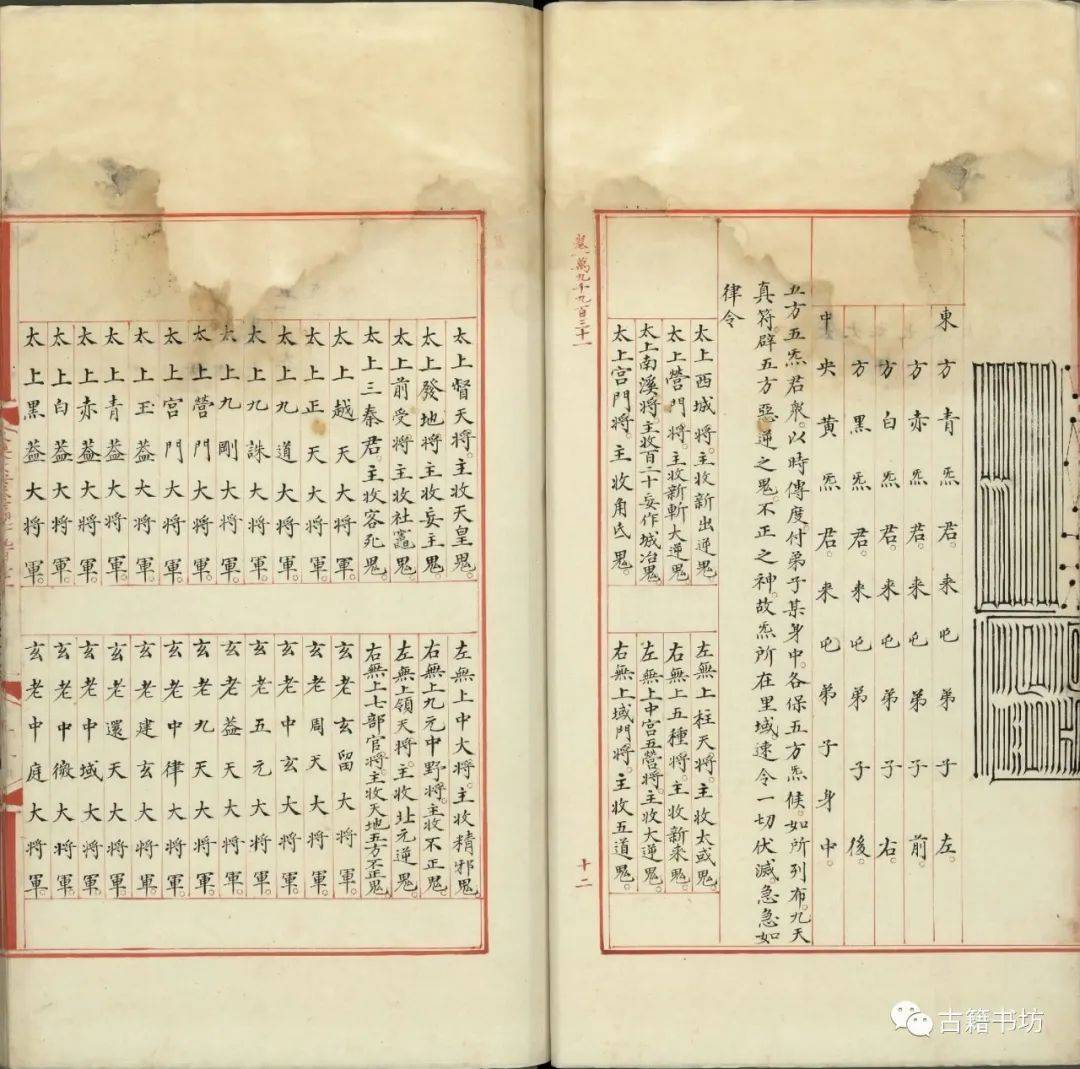 東方青炁君。来屯弟子左。
方赤炁君。来屯弟子前。
方白炁君。来屯弟子右。
方黑炁君。来屯弟子後。
中央黄炁君。来屯弟子身中。
五方五炁君衆。以時傳度。付弟子某身中。各保五方炁候。如所列布。九天
真符。辟五方惡逆之鬼。不正之神。故炁所在里域。速令一切伏滅。急急如
律令
太上西城将。主收新出逆鬼
太上營門将。主收新斬大逆鬼
太上南溪将。主收百二十妄作城冶鬼
太上宫門將。主收角氐鬼。
左無上柱天将。主收太或鬼。
右無上五種将。主收新来鬼。
左無上中宫五營将。主收大逆鬼。
右無上域門将。主收五道鬼。
卷一萬九千九百三十一
十二
太上督天将。主收天皇鬼。
太上發地將。主收妄主鬼。
太上前受将。主收社竈鬼。
太上三秦君。主收客死鬼。
太上越天大将軍。
太上正天大将軍。
太上九道大将軍。
太上九誅大将軍。
太上九剛大将軍。
太上營門大将軍。
太上宫門大将軍。
太上玉葢大将軍。
太上青葢大将軍。
太上赤葢大將軍。
太上白葢大将軍。
太上黑葢大将軍。
左無上中大将。主收精邪鬼
右無上九元中野将。主收不正鬼。
左無上領天将。主收北元逆鬼。
右無上七部官将。主收天地五方不正鬼
玄老玄留大将軍。
玄老周天大将軍。
玄老中玄大将軍。
玄老五元大将軍。
玄老葢天大将軍。
玄老九天大将軍。
玄老中律大将軍。
玄老建玄大将軍。
玄老還天大将軍。
玄老中域大将軍。
玄老中微大将軍。
玄老中庭大将軍。
古籍书坊